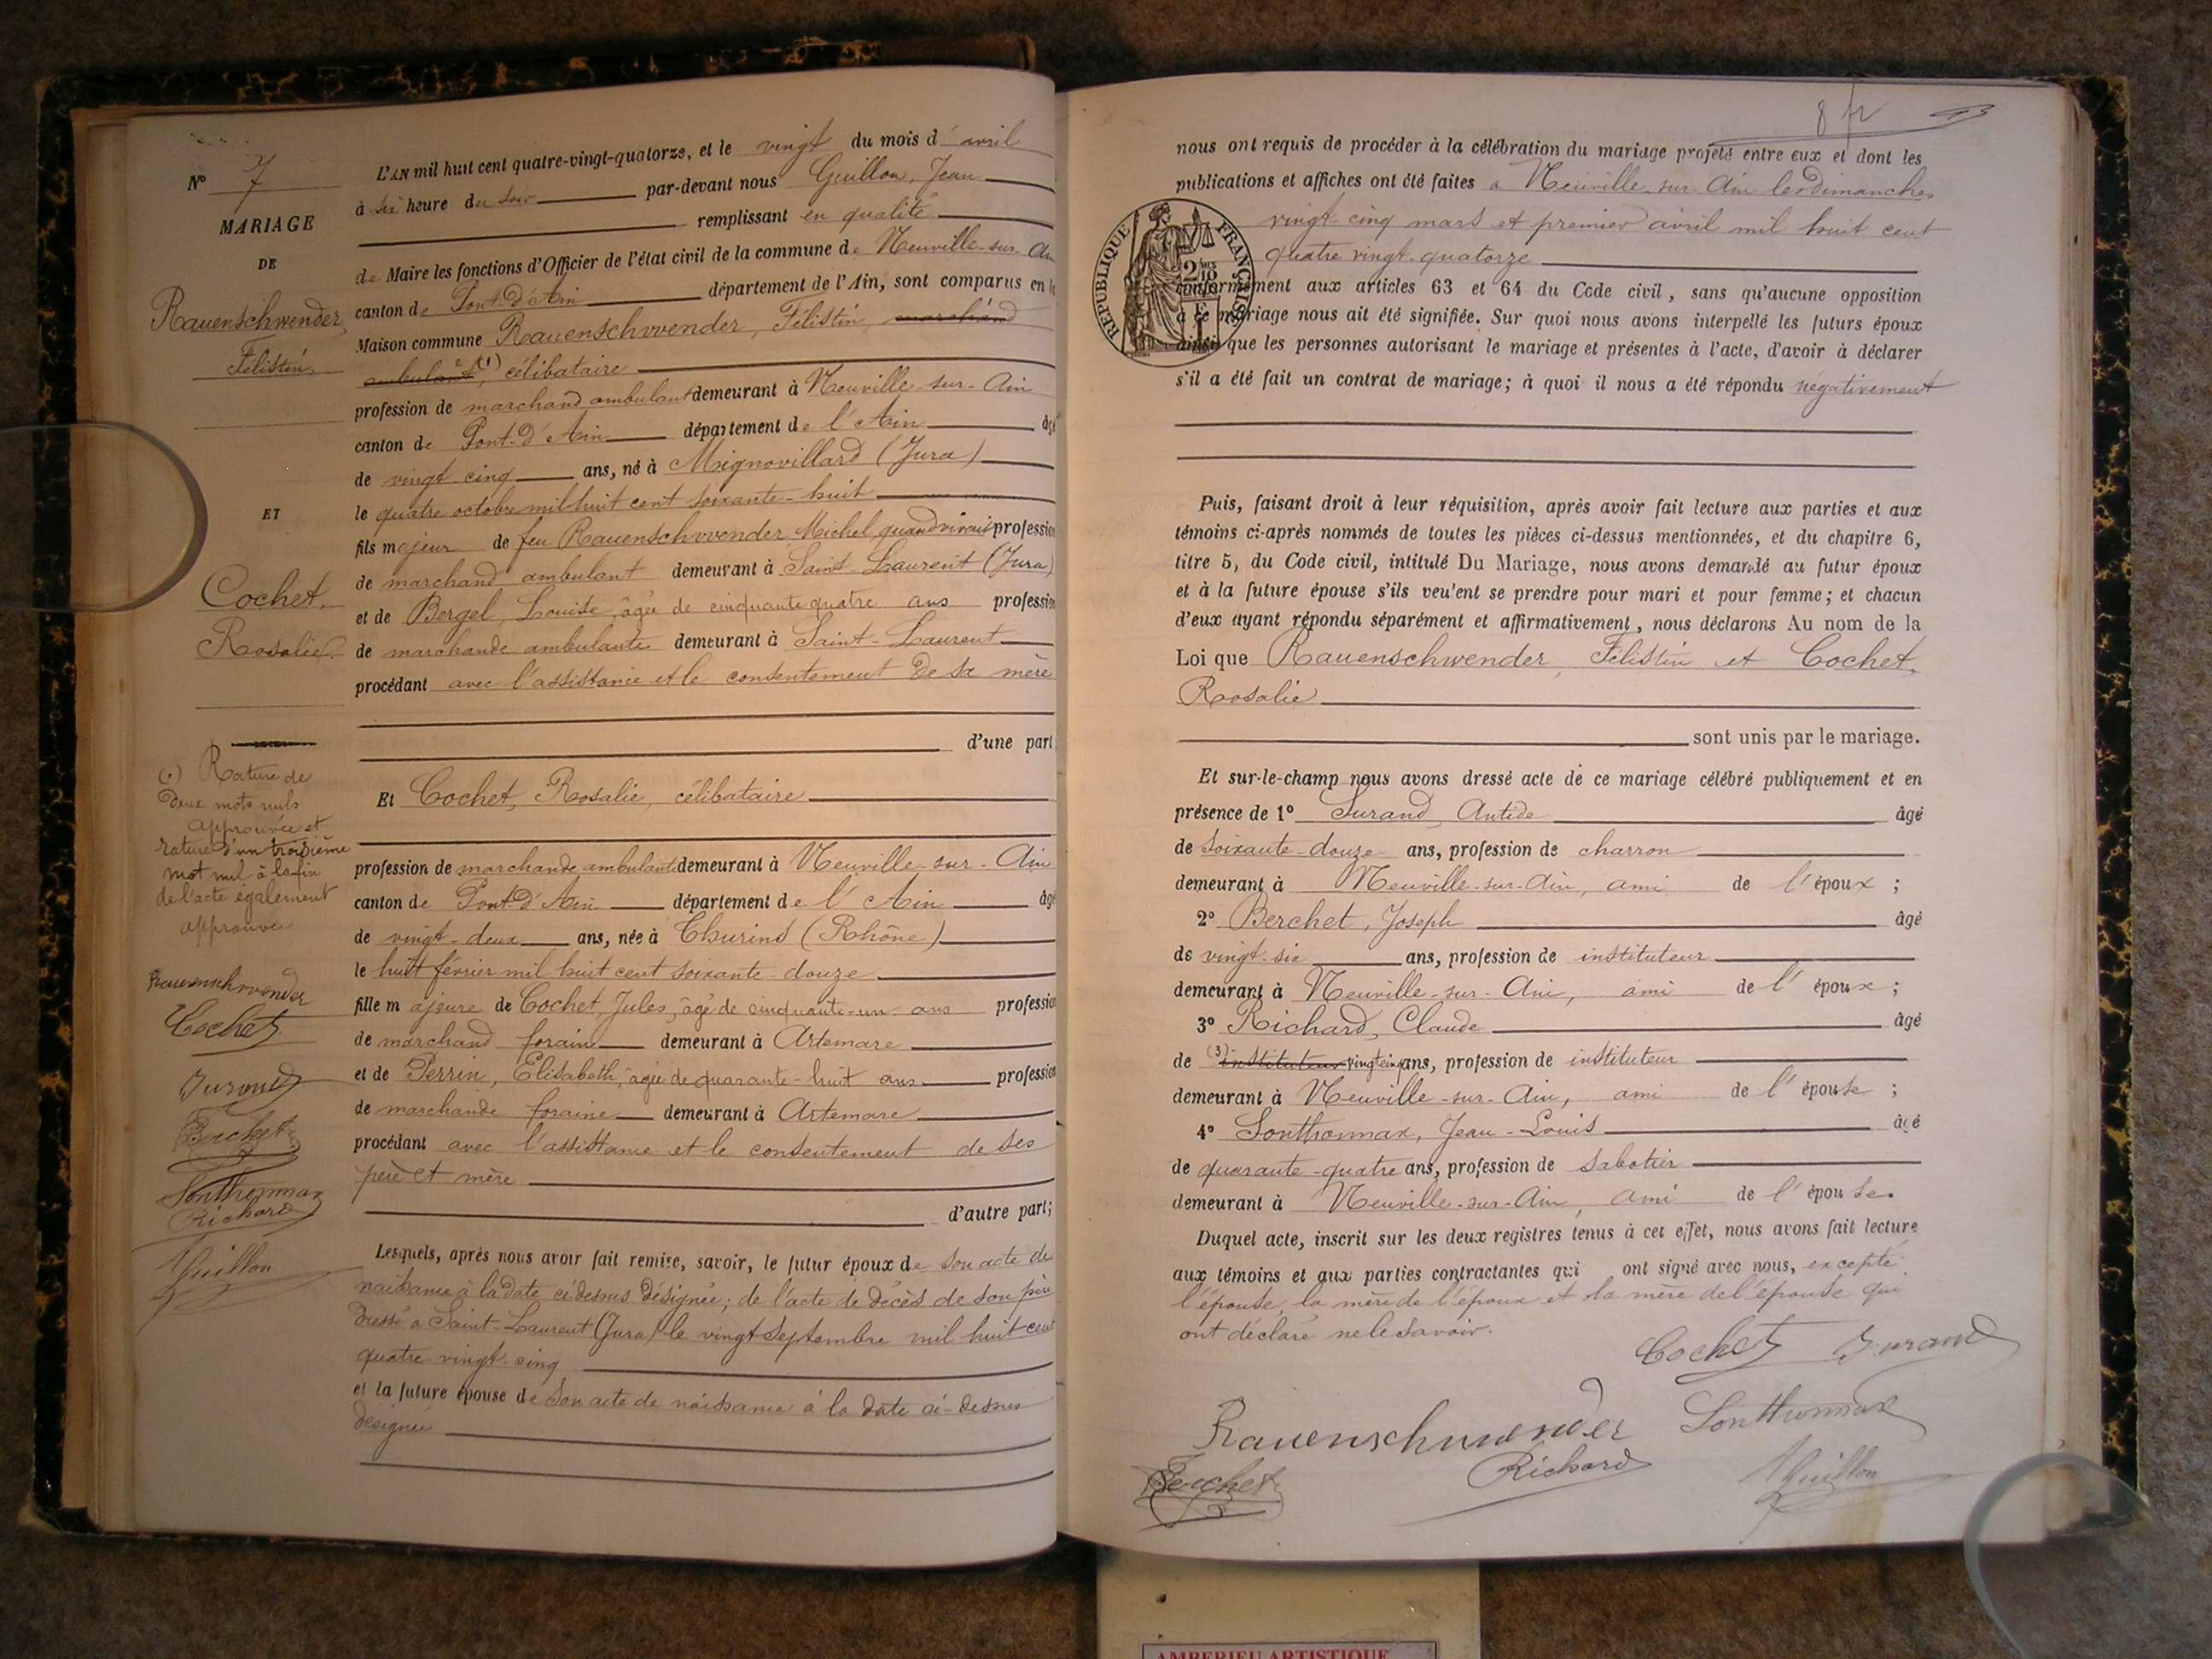 N° 7
MARIAGE
DE
Rauenschwender,
Félistin.
ET
Cochet.
Rosalie.
(1) Rature de
deux mots nuls
approuvée et
rature d'un troisième
mot nul à la fin
de l'acte également
approuvé
Rauenschwender
Cochet
Durand
Berchet
Sonthonnax
Richard
Guillon
L'AN mil huit cent quatre-vingt-quatorze, et le vingt du mois d'avril
à six heure du soir par-devant nous Guillon, Jean
remplissant en qualité
de Maire les fonctions d'Officier de l'état civil de la commune de Neuville-sur-Ain
canton de Pont-d'Ain département de l'Ain, sont comparus en la
Maison commune Rauenschwender, Félistin, marchand
ambulant (1), célibataire
profession de marchand ambulant demeurant à Neuville-sur-Ain
canton de Pont-d'Ain département de l'Ain âgé
de vingt cinq ans, né à Mignovillard (Jura)
le quatre octobre mil huit cent soixante-huit
fils majeur de feu Rauenschwender Michel, quand vivait profession
de marchand ambulant demeurant à Saint-Laurent (Jura)
et de Bergel, Louise, âgée de cinquante quatre ans profession
de marchande ambulante demeurant à Saint-Laurent
procédant avec l'assistance et le consentement de sa mère
d'une part
Et Cochet, Rosalie, célibataire
profession de marchande ambulante demeurant à Neuville-sur-Ain
canton de Pont-d'Ain département de l'Ain âgé
de vingt-deux ans, née à Thurins (Rhône)
le huit février mil huit cent soixante-douze
fille majeure de Cochet, Jules, âgé de cinquante-un ans profession
de marchand forain demeurant à Artemare
et de Perrin, Elisabeth, âgée de quarante-huit ans profession
de marchande foraine demeurant à Artemare
procédant avec l'assistance et le consentement de ses
père et mère
d'autre part;
Lesquels, après nous avoir fait remise, savoir, le futur époux de son acte de
naissance à la date ci dessus désignée; de l'acte de décès de son père
dressé à Saint-Laurent (Jura) le vingt septembre mil huit cent
quatre vingt-cinq
et la future épouse de son acte de naissance à la date ci-dessus
désignée
8 fr
nous ont requis de procéder à la célébration du mariage projeté entre eux et dont les
publications et affiches ont été faites à Neuville-sur-Ain les dimanches
vingt-cinq mars et premier avril mil huit cent
quatre vingt-quatorze
RÉPUBLIQUE FRANÇAISE
conformément aux articles 63 et 64 du Code civil, sans qu'aucune opposition
à ce mariage nous ait été signifiée. Sur quoi nous avons interpellé les futurs époux
ainsi que les personnes autorisant le mariage et présentes à l'acte, d'avoir à déclarer
s'il a été fait un contrat de mariage; à quoi il nous a été répondu négativement
Puis, faisant droit à leur réquisition, après avoir fait lecture aux parties et aux
témoins ci-après nommés de toutes les pièces ci-dessus mentionnées, et du chapitre 6,
titre 5, du Code civil, intitulé Du Mariage, nous avons demandé au futur époux
et à la future épouse s'ils veulent se prendre pour mari et pour femme; et chacun
d'eux ayant répondu séparément et affirmativement, nous déclarons Au nom de la
Loi que Rauenschwender, Félistin et Cochet,
Rosalie
sont unis par le mariage.
Et sur-le-champ nous avons dressé acte de ce mariage célébré publiquement et en
présence de 1° Durand, Antide âgé
de soixante-douze ans, profession de charron
demeurant à Neuville-sur-Ain, ami de l'époux;
2° Berchet, Joseph âgé
de vingt-six ans, profession de instituteur
demeurant à Neuville-sur-Ain, ami de l'époux;
3° Richard, Claude âgé
de (3) instituteur vingt cinq ans, profession de instituteur
demeurant à Neuville-sur-Ain, ami de l'épouse;
4° Sonthonnax, Jean-Louis âgé
de quarante-quatre ans, profession de sabotier
demeurant à Neuville-sur-Ain, ami de l'épouse.
Duquel acte, inscrit sur les deux registres tenus à cet effet, nous avons fait lecture
aux témoins et aux parties contractantes qui ont signé avec nous, excepté
l'épouse, la mère de l'époux et la mère de l'épouse qui
ont déclaré ne le savoir.
Cochet Durand
Rauenschwender Sonthonnax
Berchet Richard Guillon
AMBERIEU ARTISTIQUE